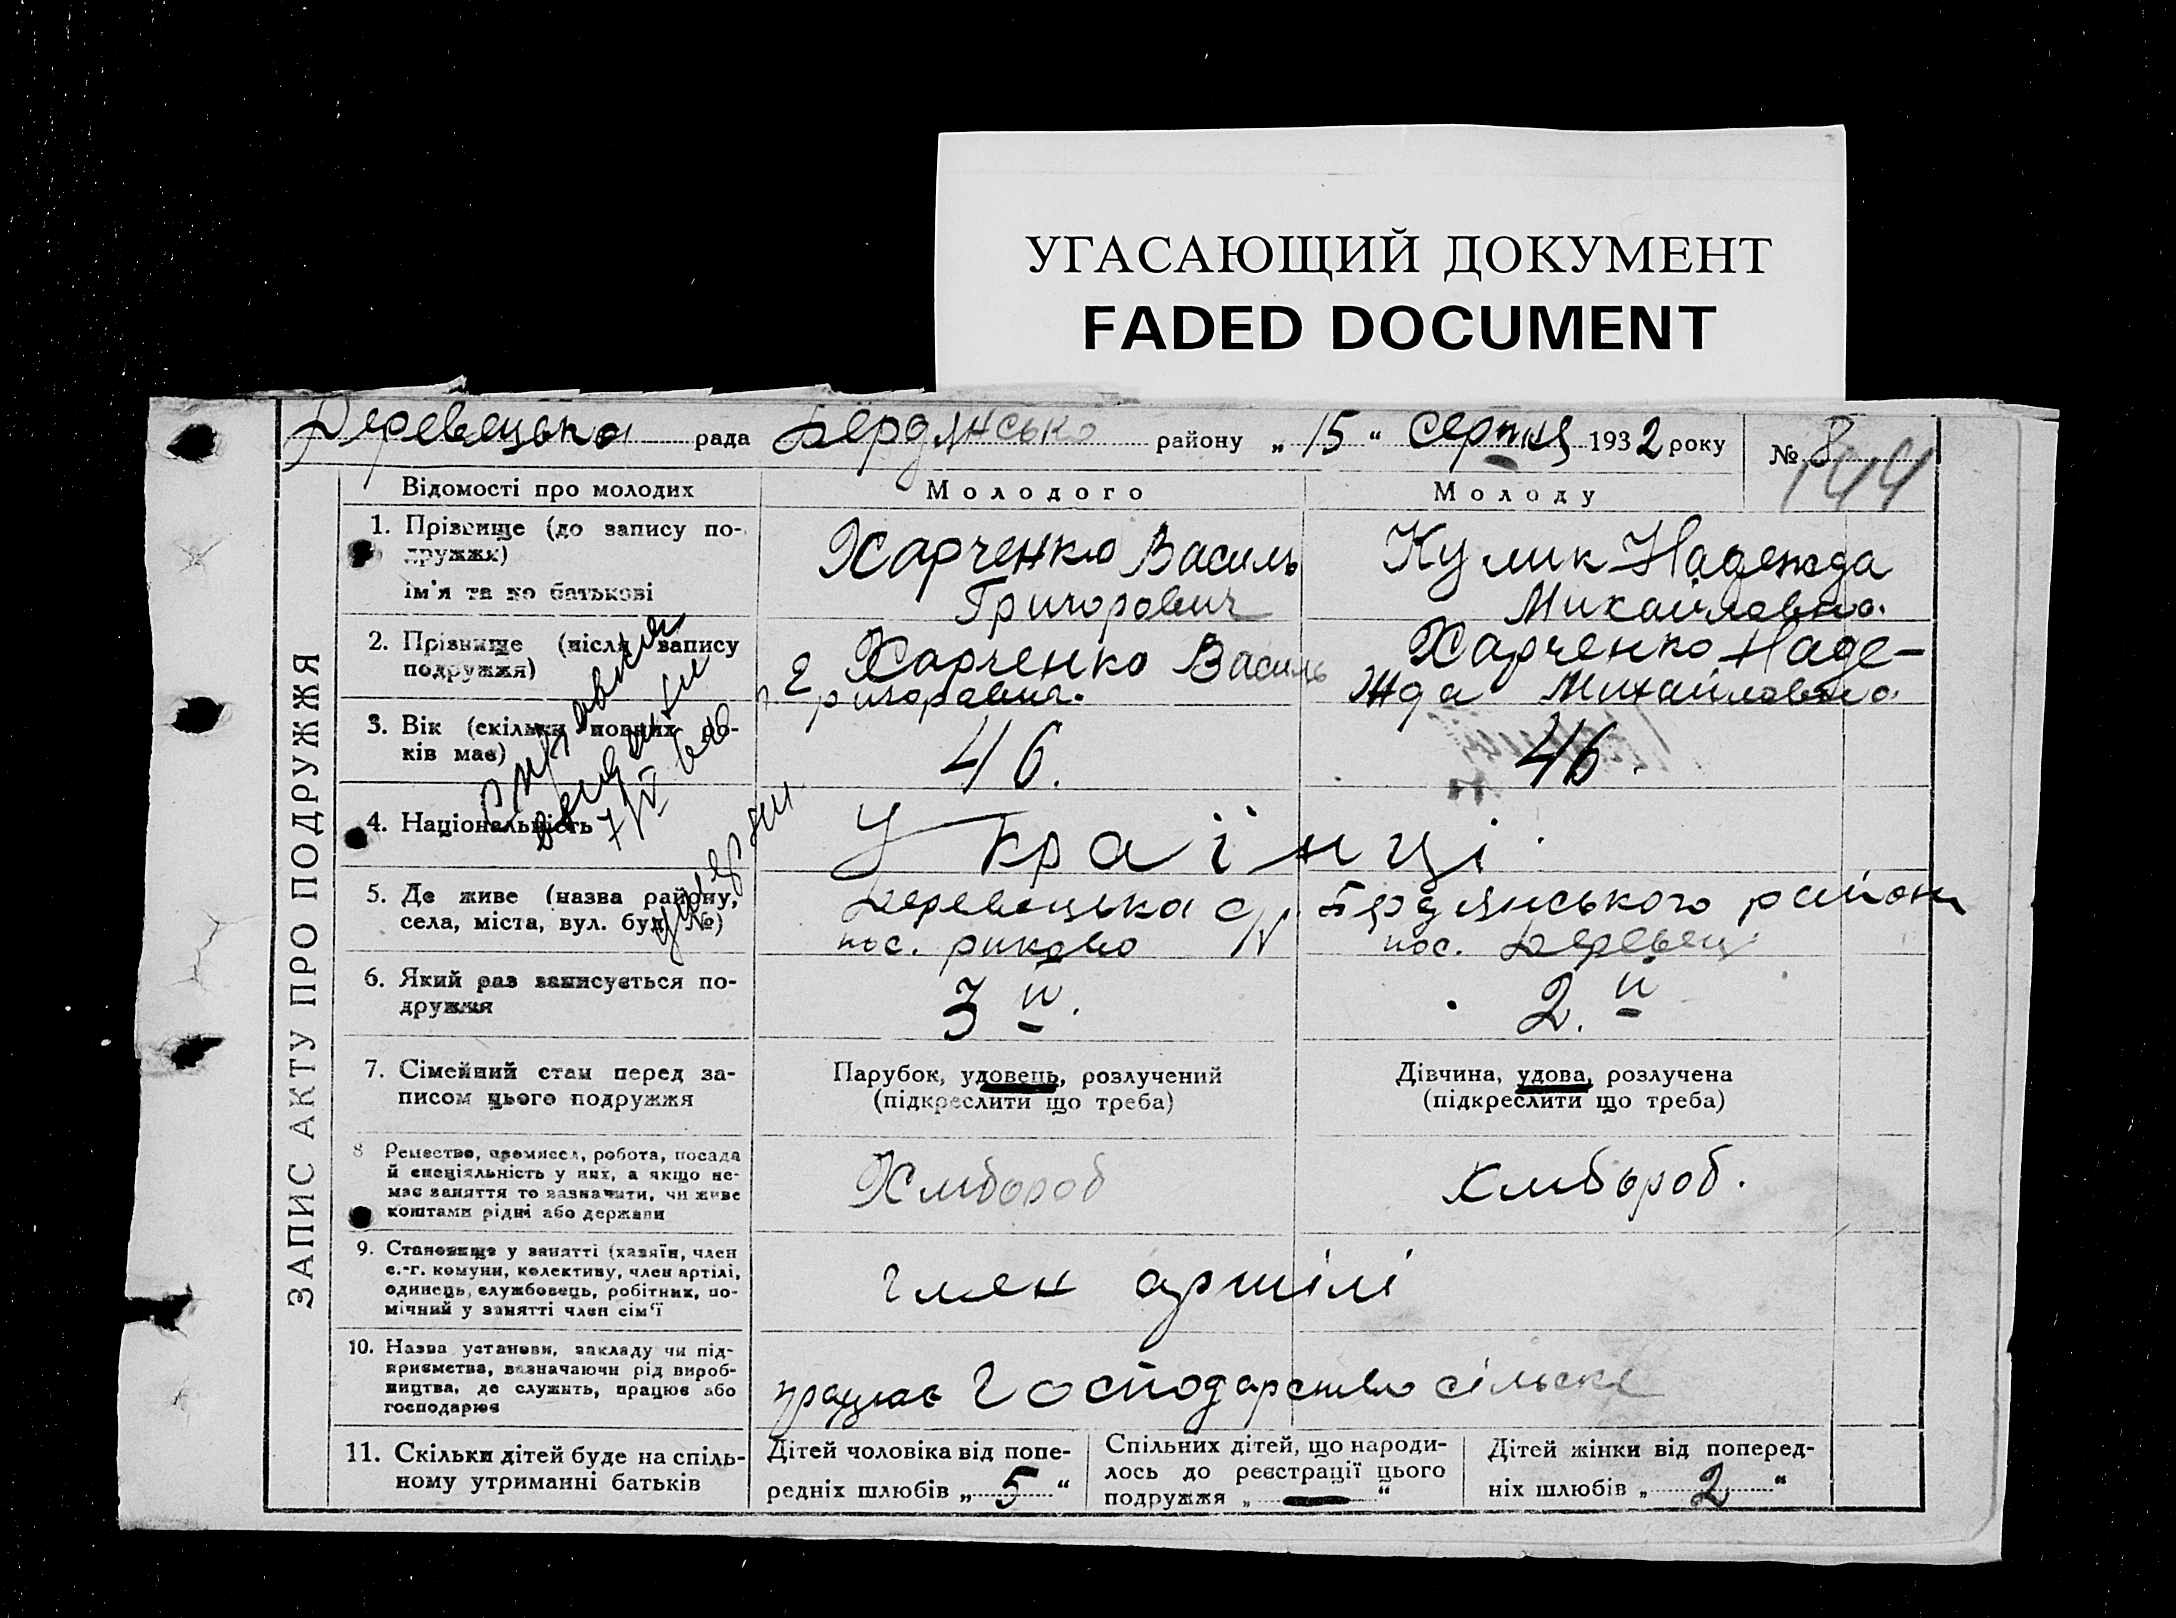 УГАСАЮЩИЙ ДОКУМЕНТ
FADED DOCUMENT
Деревецька рада Бердянсько району „15“ серпня 1932 року № 8
144
ЗАПИС АКТУ ПРО ПОДРУЖЖЯ
Відомості про молодих Молодого Молоду
1. Прізвище (до запису подружжя) ім'я та по батькові
Харченко Василь
Григорович
Кулик Надежда
Михайловна.
2. Прізвище (після запису
подружжя)
Харченко Василь
Григорович.
Харченко Наде-
жда Михайловна
3. Вік (скільки повних ро-
ків має)
46. 46.
4. Національність
Українці
5. Де живе (назва району,
села, міста, вул. буд. №)
Деревецька с/р. Бердянського району
пос. риково пос. Деревец
6. Який раз записується по-
дружжя
3й. 2.й
7. Сімейний стан перед за-
писом цього подружжя
Парубок, удовець, розлучений
(підкреслити що треба)
Дівчина, удова, розлучена
(підкреслити що треба)
8 Ремество, промисел, робота, посада
й спеціяльність у них, а якщо не-
має заняття то зазначити, чи живе
коштами рідні або держави
Хлибороб хлибороб.
9. Становище у занятті (хазяїн, член
с.-г. комуни, колективу, член артілі,
одинець, службовець, робітник, по-
мічний у занятті член сім'ї
член артілі
10. Назва установи, закладу чи під-
приємства, зазначаючи рід вироб-
ництва, де служить, працює або
господарює
працює Господарство сільске
11. Скільки дітей буде на спіль-
ному утриманні батьків
Дітей чоловіка від попе-
редніх шлюбів „5“
Спільних дітей, що народи-
лось до реєстрації цього
подружжя „—“
Дітей жінки від поперед-
ніх шлюбів „2“